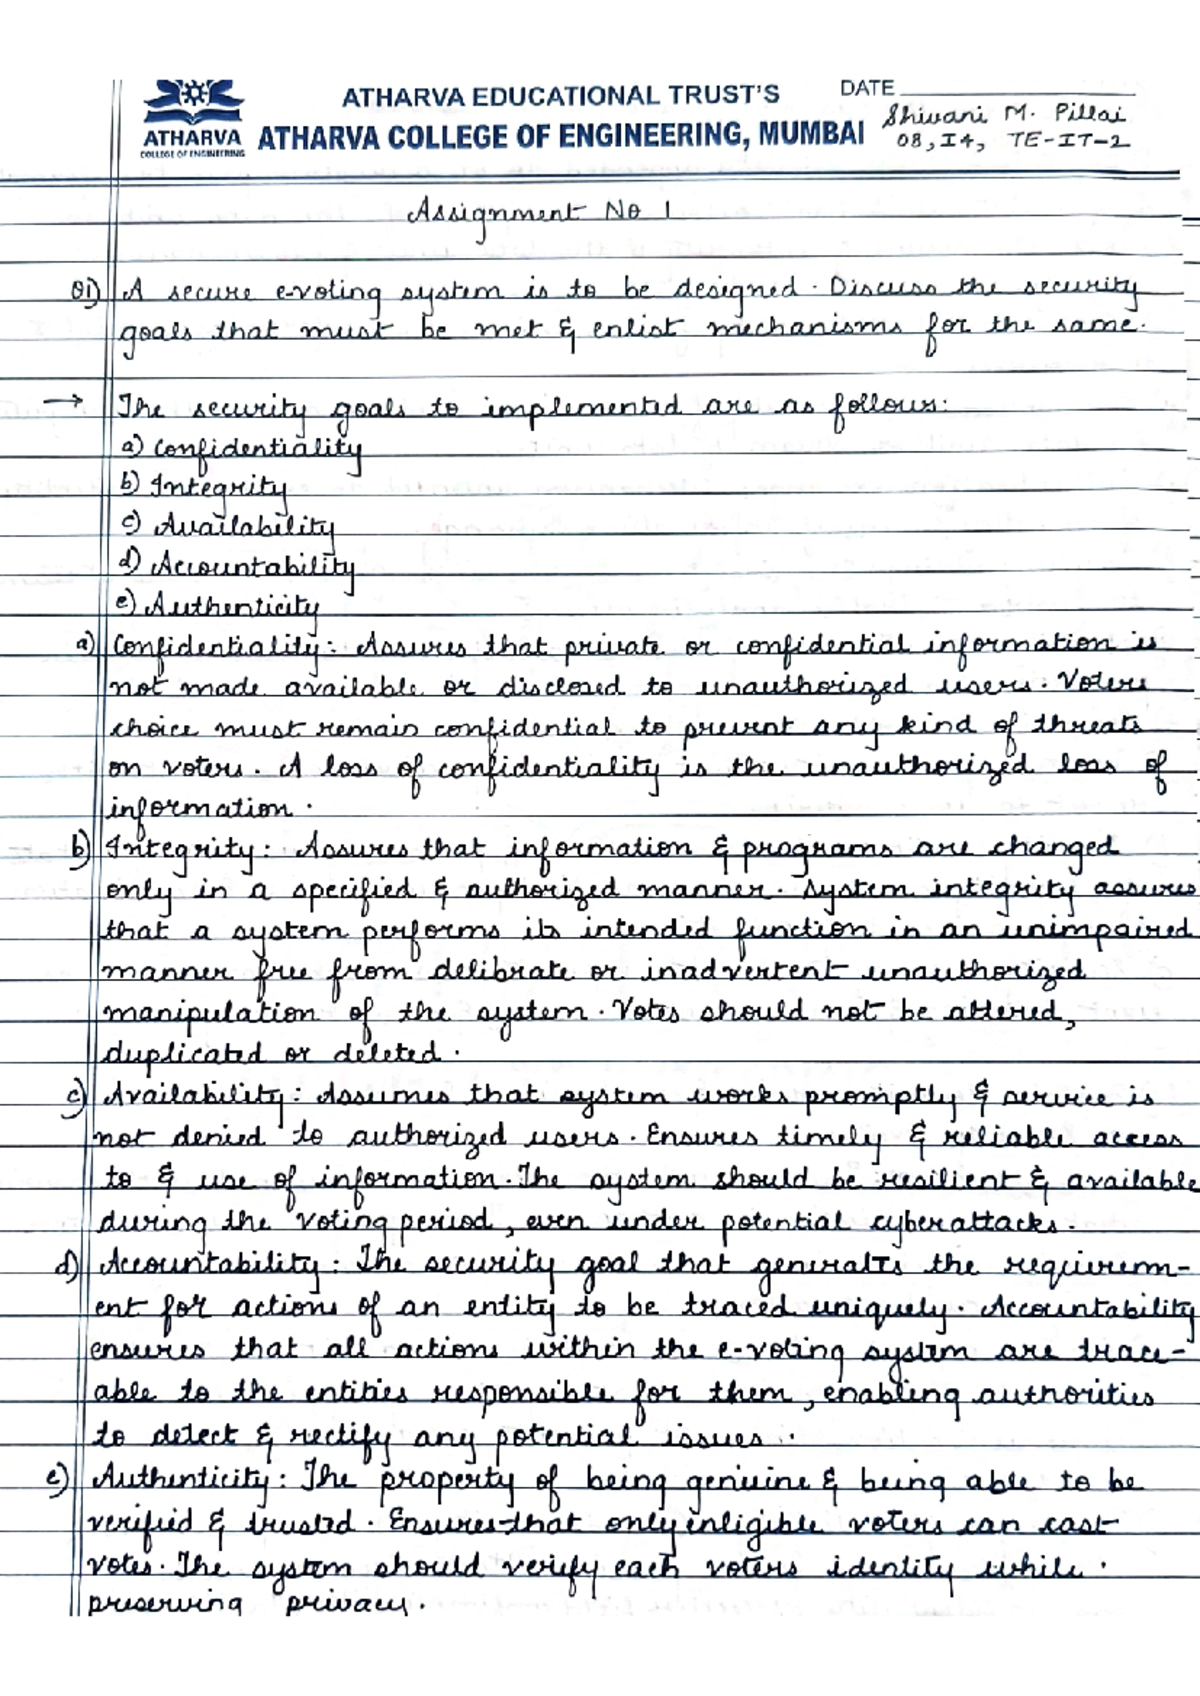 ATHARVA EDUCATIONAL TRUST'S
DATE
ATHARVA
COLLEGE OF ENGINEERING
ATHARVA COLLEGE OF ENGINEERING, MUMBAI
Shivani M. Pillai
08, I4, TE-IT-2
Assignment No 1
Q1) A secure e-voting system is to be designed. Discuss the security
goals that must be met & enlist mechanisms for the same.
→ The security goals to implemented are as follows:
a) Confidentiality
b) Integrity
c) Availability
d) Accountability
e) Authenticity
a) Confidentiality: Assures that private or confidential information is
not made available or disclosed to unauthorized users. Voters
choice must remain confidential to prevent any kind of threats
on voters. A loss of confidentiality is the unauthorized loss of
information.
b) Integrity: Assures that information & programs are changed
only in a specified & authorized manner. System integrity assures
that a system performs its intended function in an unimpaired
manner free from delibrate or inadvertent unauthorized
manipulation of the system. Votes should not be altered,
duplicated or deleted.
c) Availability: Assumes that system works promptly & service is
not denied to authorized users. Ensures timely & reliable access
to & use of information. The system should be resilient & available
during the voting period, even under potential cyberattacks.
d) Accountability: The security goal that generates the requirem-
ent for actions of an entity to be traced uniquely. Accountability
ensures that all actions within the e-voting system are trace-
able to the entities responsible for them, enabling authorities
to detect & rectify any potential issues.
e) Authenticity: The property of being geniuine & being able to be
verified & trusted. Ensures that only enligible voters can cast
votes. The system should verify each voters identity while.
preserving privacy.